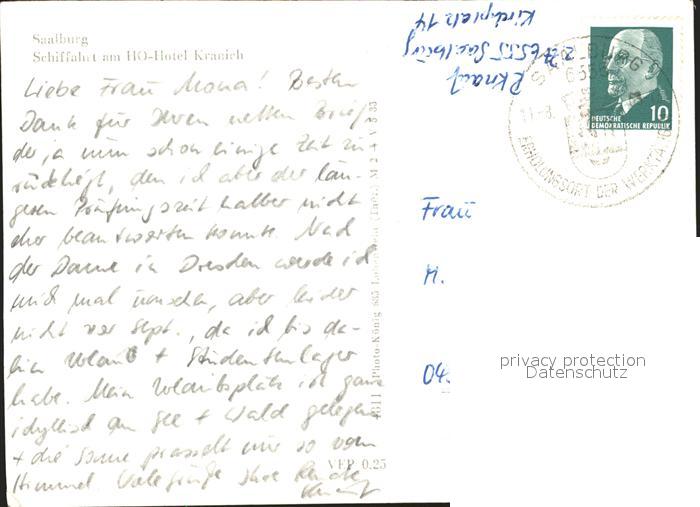 Saalburg
Schiffahrt am HO-Hotel Kranich
Liebe Frau Mona! Besten
Dank für Ihren netten Brief,
der ja nun schon einige Zeit zu-
rückliegt, den ich aber der län-
geren Prüfungszeit halber nicht
eher beantworten konnte. Nach
der Dame in Dresden werde ich
mich mal umsehen, aber leider
nicht vor Sept., da ich bis da-
hin Urlaub + Studentenlager
habe. Mein Urlaubsplatz ist ganz
idyllisch an See + Wald gelegen
+ die Sonne prasselt nur so vom
Himmel. Viele Grüße Ihre
4311 Photo-König 685 Lobenstein (Thür.) M 2 A V 8 33
VEP 0.25
R. Knauf
z. Zt. 6555 Saalburg
Kirchplatz 14
SAALBURG
6555
11.-8.
ERHOLUNGSORT DER WERKTÄTIGEN
10
DEUTSCHE
DEMOKRATISCHE REPUBLIK
Frau
M.
04
privacy protection
Datenschutz